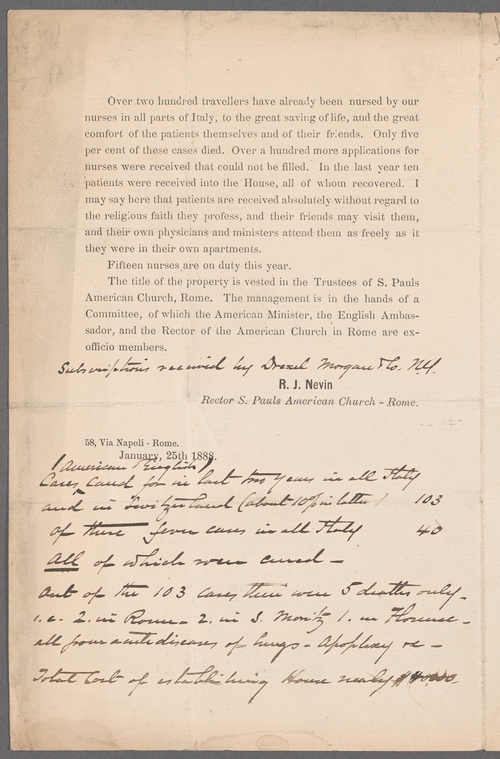 Over two hundred travellers have already been nursed by our
nurses in all parts of Italy, to the great saving of life, and the great
comfort of the patients themselves and of their friends. Only five
per cent of these cases died. Over a hundred more applications for
nurses were received that could not be filled. In the last year ten
patients were received into the House, all of whom recovered. I
may say here that patients are received absolutely without regard to
the religious faith they profess, and their friends may visit them,
and their own physicians and ministers attend them as freely as it
they were in their own apartments.
Fifteen nurses are on duty this year.
The title of the property is vested in the Trustees of S. Pauls
American Church, Rome. The management is in the hands of a
Committee, of which the American Minister, the English Ambas-
sador, and the Rector of the American Church in Rome are ex-
officio members.
Subscriptions received by Drexel Morgan & Co. N.Y.
R. J. Nevin
Rector S. Pauls American Church - Rome.
58, Via Napoli - Rome.
January, 25th 1888.
(American & English)
Cases cared for in last two years in all Italy
and in Switzerland (about 10% in latter) 103
of these fever cases in all Italy 40
All of which were cured -
Out of the 103 cases there were 5 deaths only -
i.e. 2. in Rome - 2. in S. Moritz 1. in Florence -
all from acute diseases of lungs - Apoplexy &c -
Total Cost of establishing House nearly